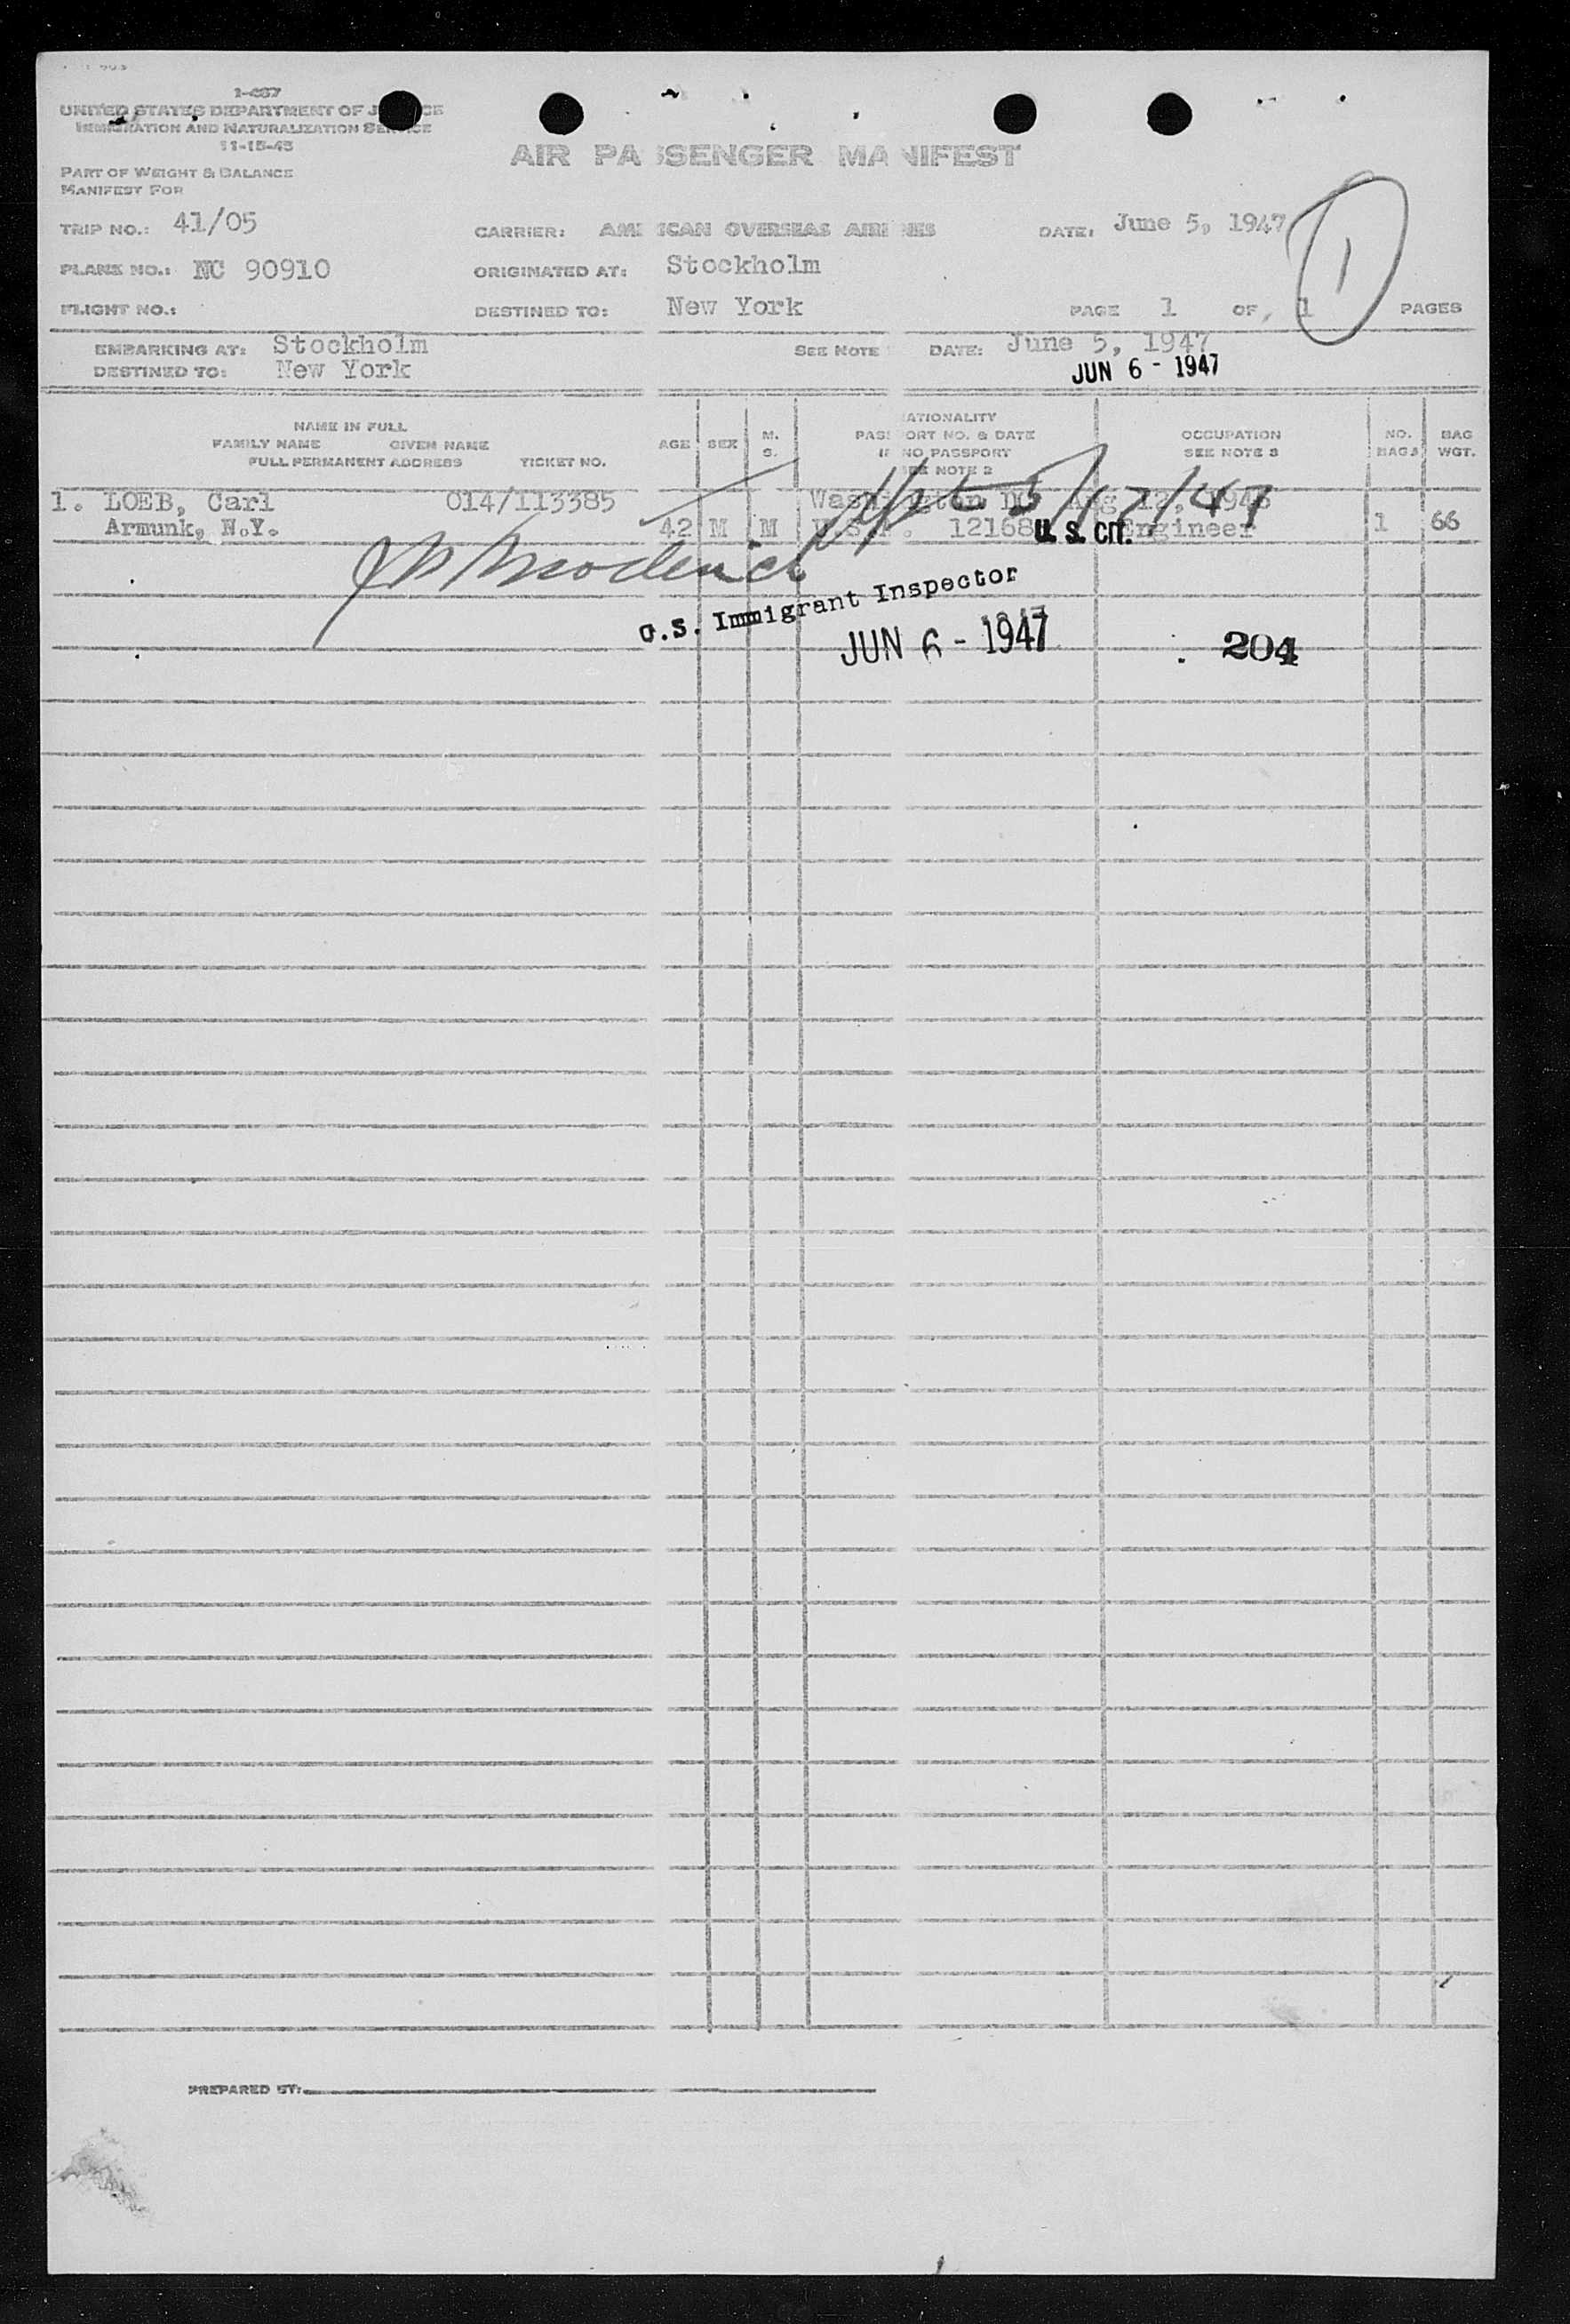 1-467
UNITED STATES DEPARTMENT OF J CE
IMMIGRATION AND NATURALIZATION SERVICE
11-15-45
AIR PASSENGER MANIFEST
PART OF WEIGHT & BALANCE
MANIFEST FOR
TRIP NO.: 41/05 CARRIER: AMERICAN OVERSEAS AIRLINES DATE: June 5, 1947
1
PLANE NO.: NC 90910 ORIGINATED AT: Stockholm
FLIGHT NO.: DESTINED TO: New York PAGE 1 OF 1 PAGES
EMBARKING AT: Stockholm SEE NOTE DATE: June 5, 1947
DESTINED TO: New York JUN 6 - 1947
NAME IN FULL
FAMILY NAME GIVEN NAME
FULL PERMANENT ADDRESS TICKET NO.
AGE SEX M. S.
NATIONALITY
PASSPORT NO. & DATE
IF NO PASSPORT
SEE NOTE 2
OCCUPATION
SEE NOTE 3
NO. BAGS
BAG WGT.
1. LOEB, Carl 014/113385 Washington DC Aug 12, 194
Armunk, N.Y. 42 M M 12168 U.S. CIT. Engineer 1 66
5/17/47
U.S. Immigrant Inspector
JUN 6 - 1947 204
PREPARED BY: